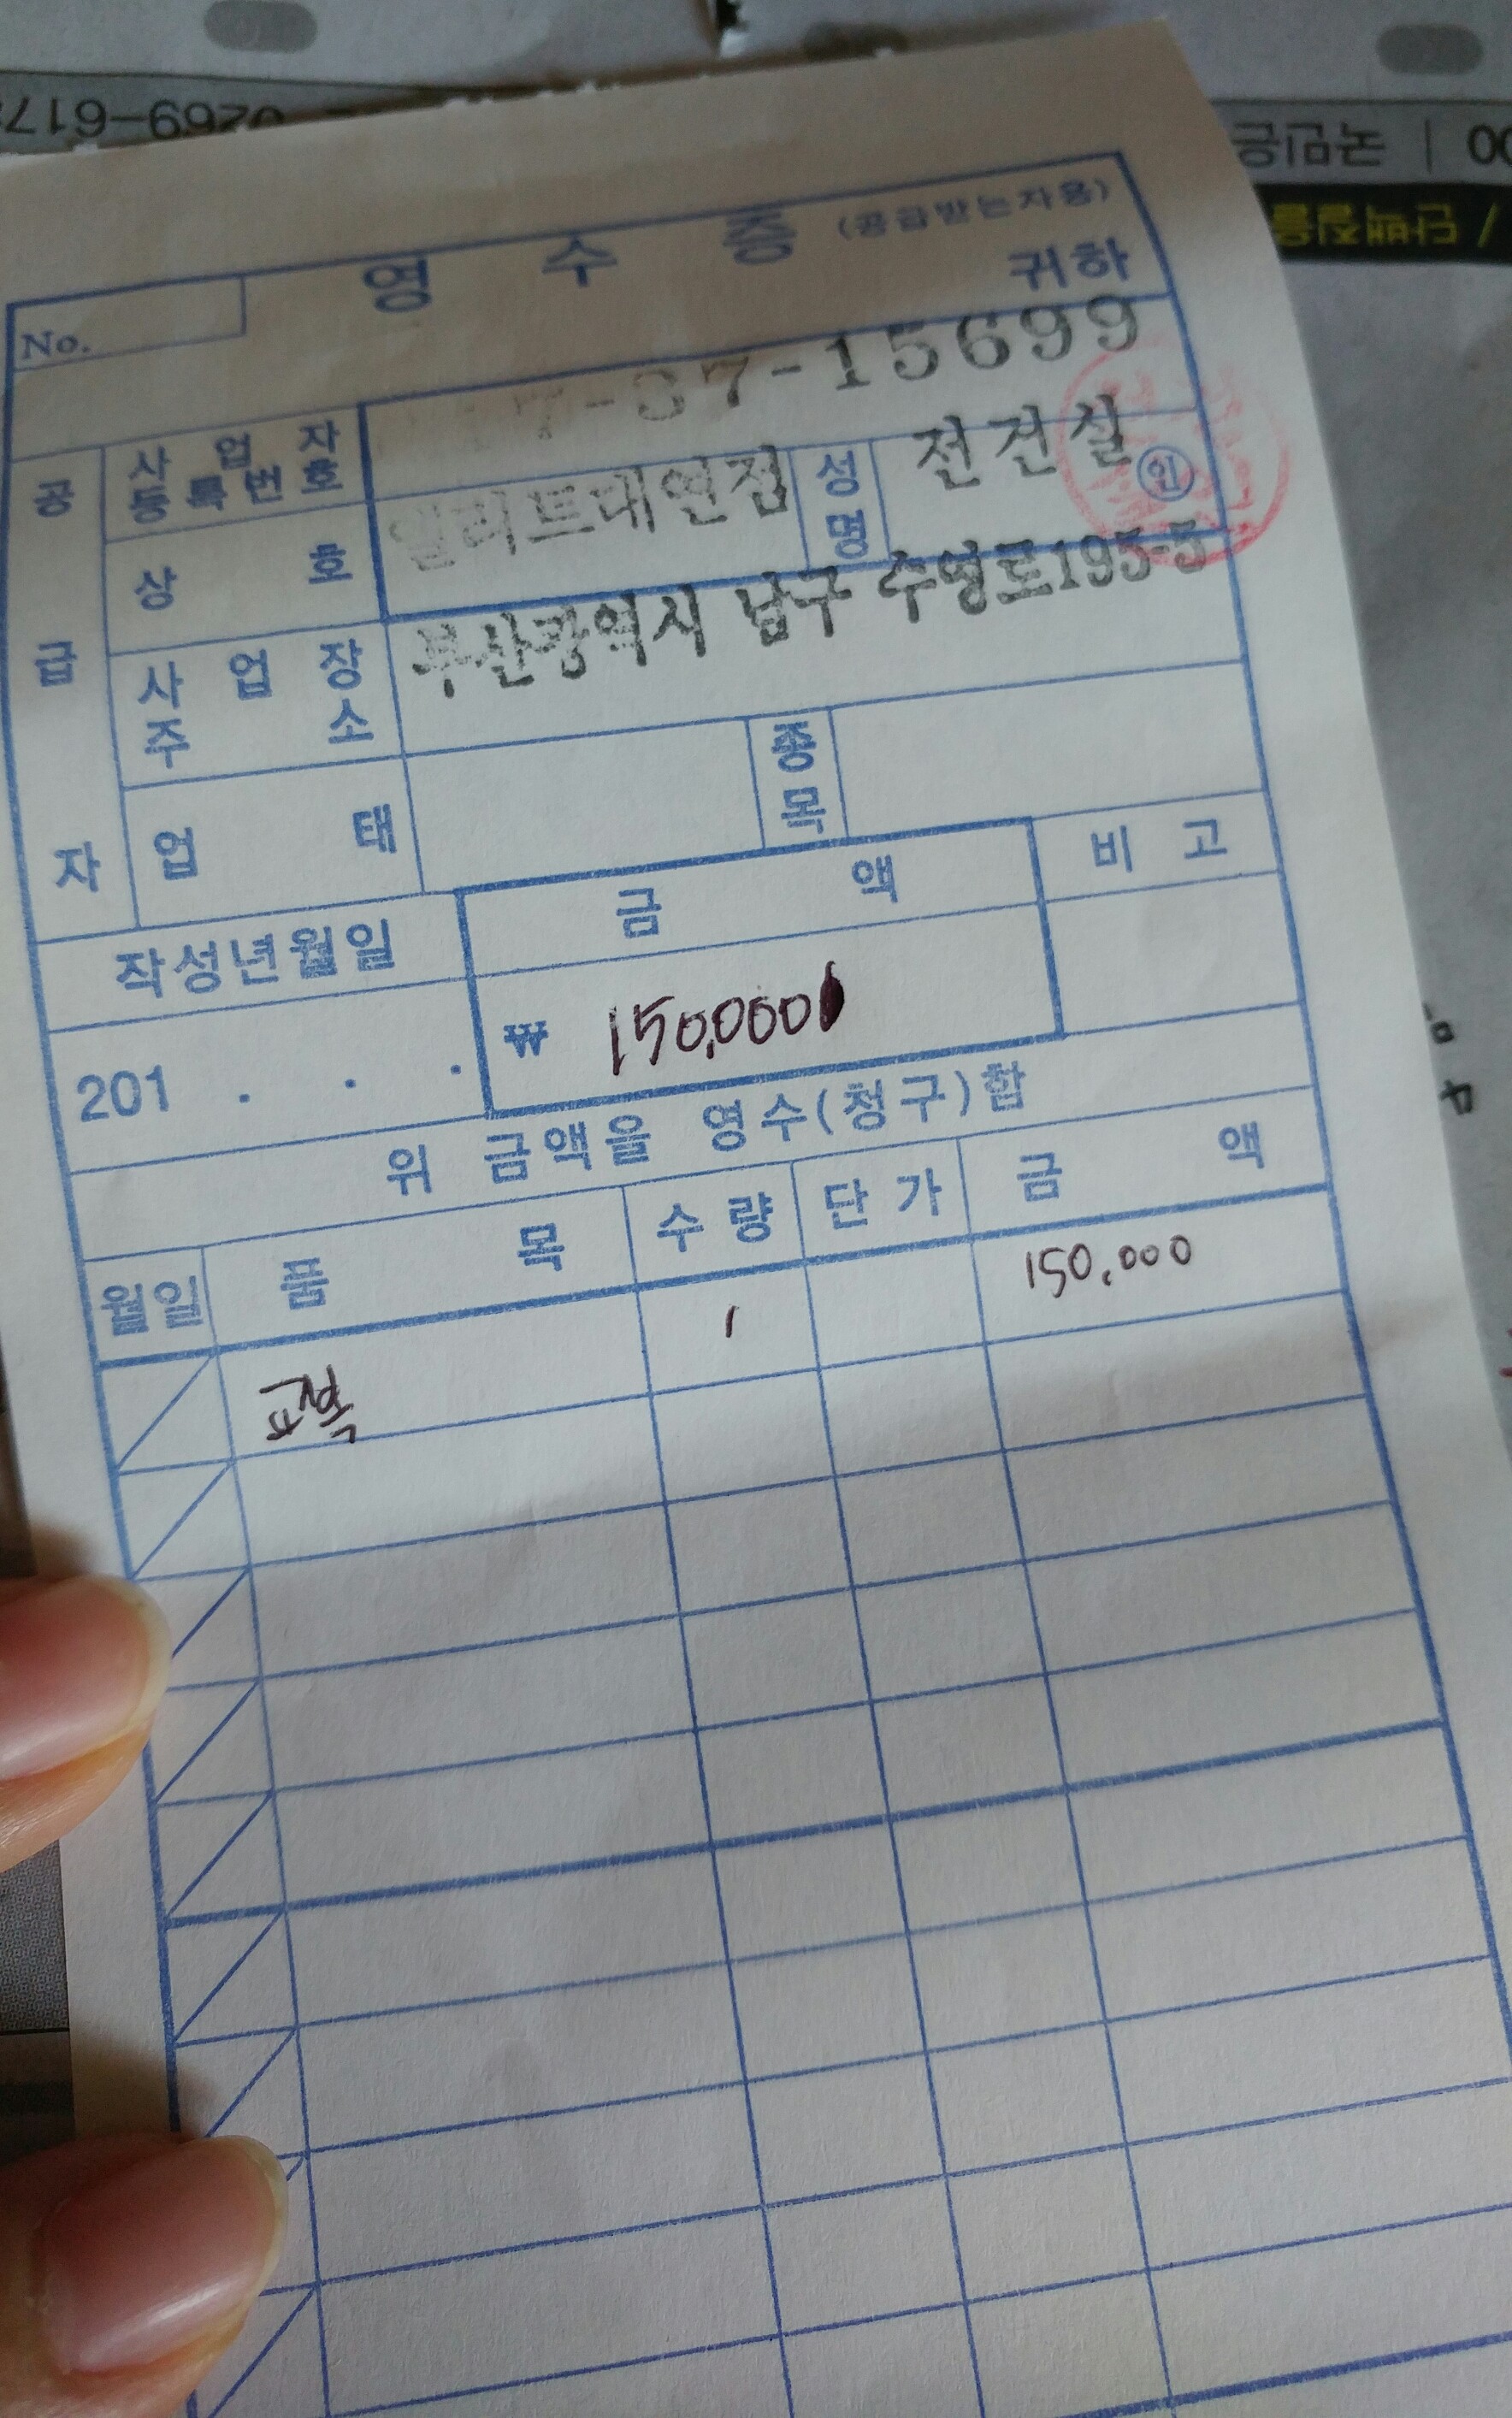 영 수 증 (공급받는자용)
No.
귀하
공급자
사업자등록번호
7-37-15699
상호
엘리트대연점
성명
전건실
인
사업장주소
부산광역시 남구 수영로195-5
업태
종목
작성년월일
금액
비고
201 . . .
₩ 150,000
위 금액을 영수(청구)함
월일 품목 수량 단가 금액
1 150,000